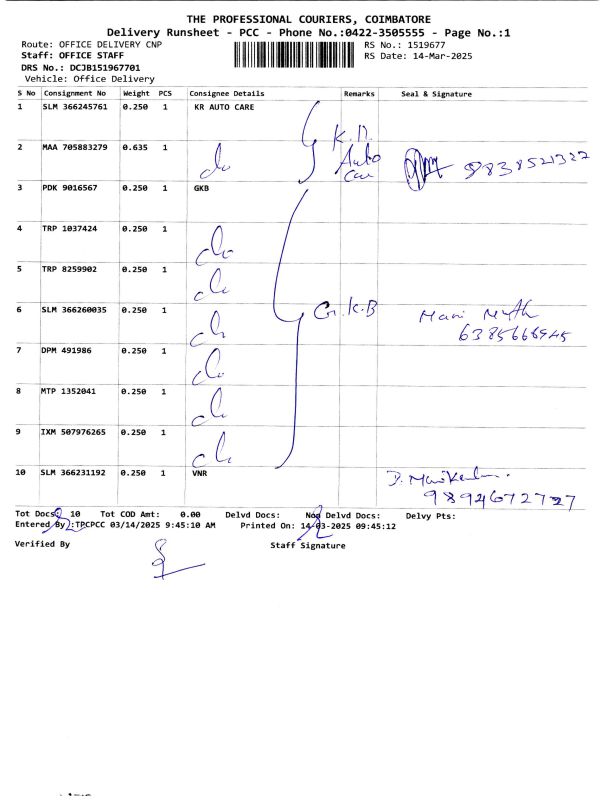 THE PROFESSIONAL COURIERS, COIMBATORE
Delivery Runsheet - PCC - Phone No.:0422-3505555 - Page No.:1
Route: OFFICE DELIVERY CNP RS No.: 1519677
Staff: OFFICE STAFF RS Date: 14-Mar-2025
DRS No.: DCJB151967701
Vehicle: Office Delivery
S No Consignment No Weight PCS Consignee Details Remarks Seal & Signature
1 SLM 366245761 0.250 1 KR AUTO CARE
K.R
2 MAA 705883279 0.635 1 do Auto
Car
3 PDK 9016567 0.250 1 GKB
4 TRP 1037424 0.250 1 do
5 TRP 8259902 0.250 1 do
6 SLM 366260035 0.250 1 do G.K.B Mari
7 DPM 491986 0.250 1 do
8 MTP 1352041 0.250 1 do
9 IXM 507976265 0.250 1 do
10 SLM 366231192 0.250 1 VNR
Tot Docs: 10 Tot COD Amt: 0.00 Delvd Docs: Non Delvd Docs: Delvy Pts:
Entered By :TPCPCC 03/14/2025 9:45:10 AM Printed On: 14-03-2025 09:45:12
Verified By Staff Signature